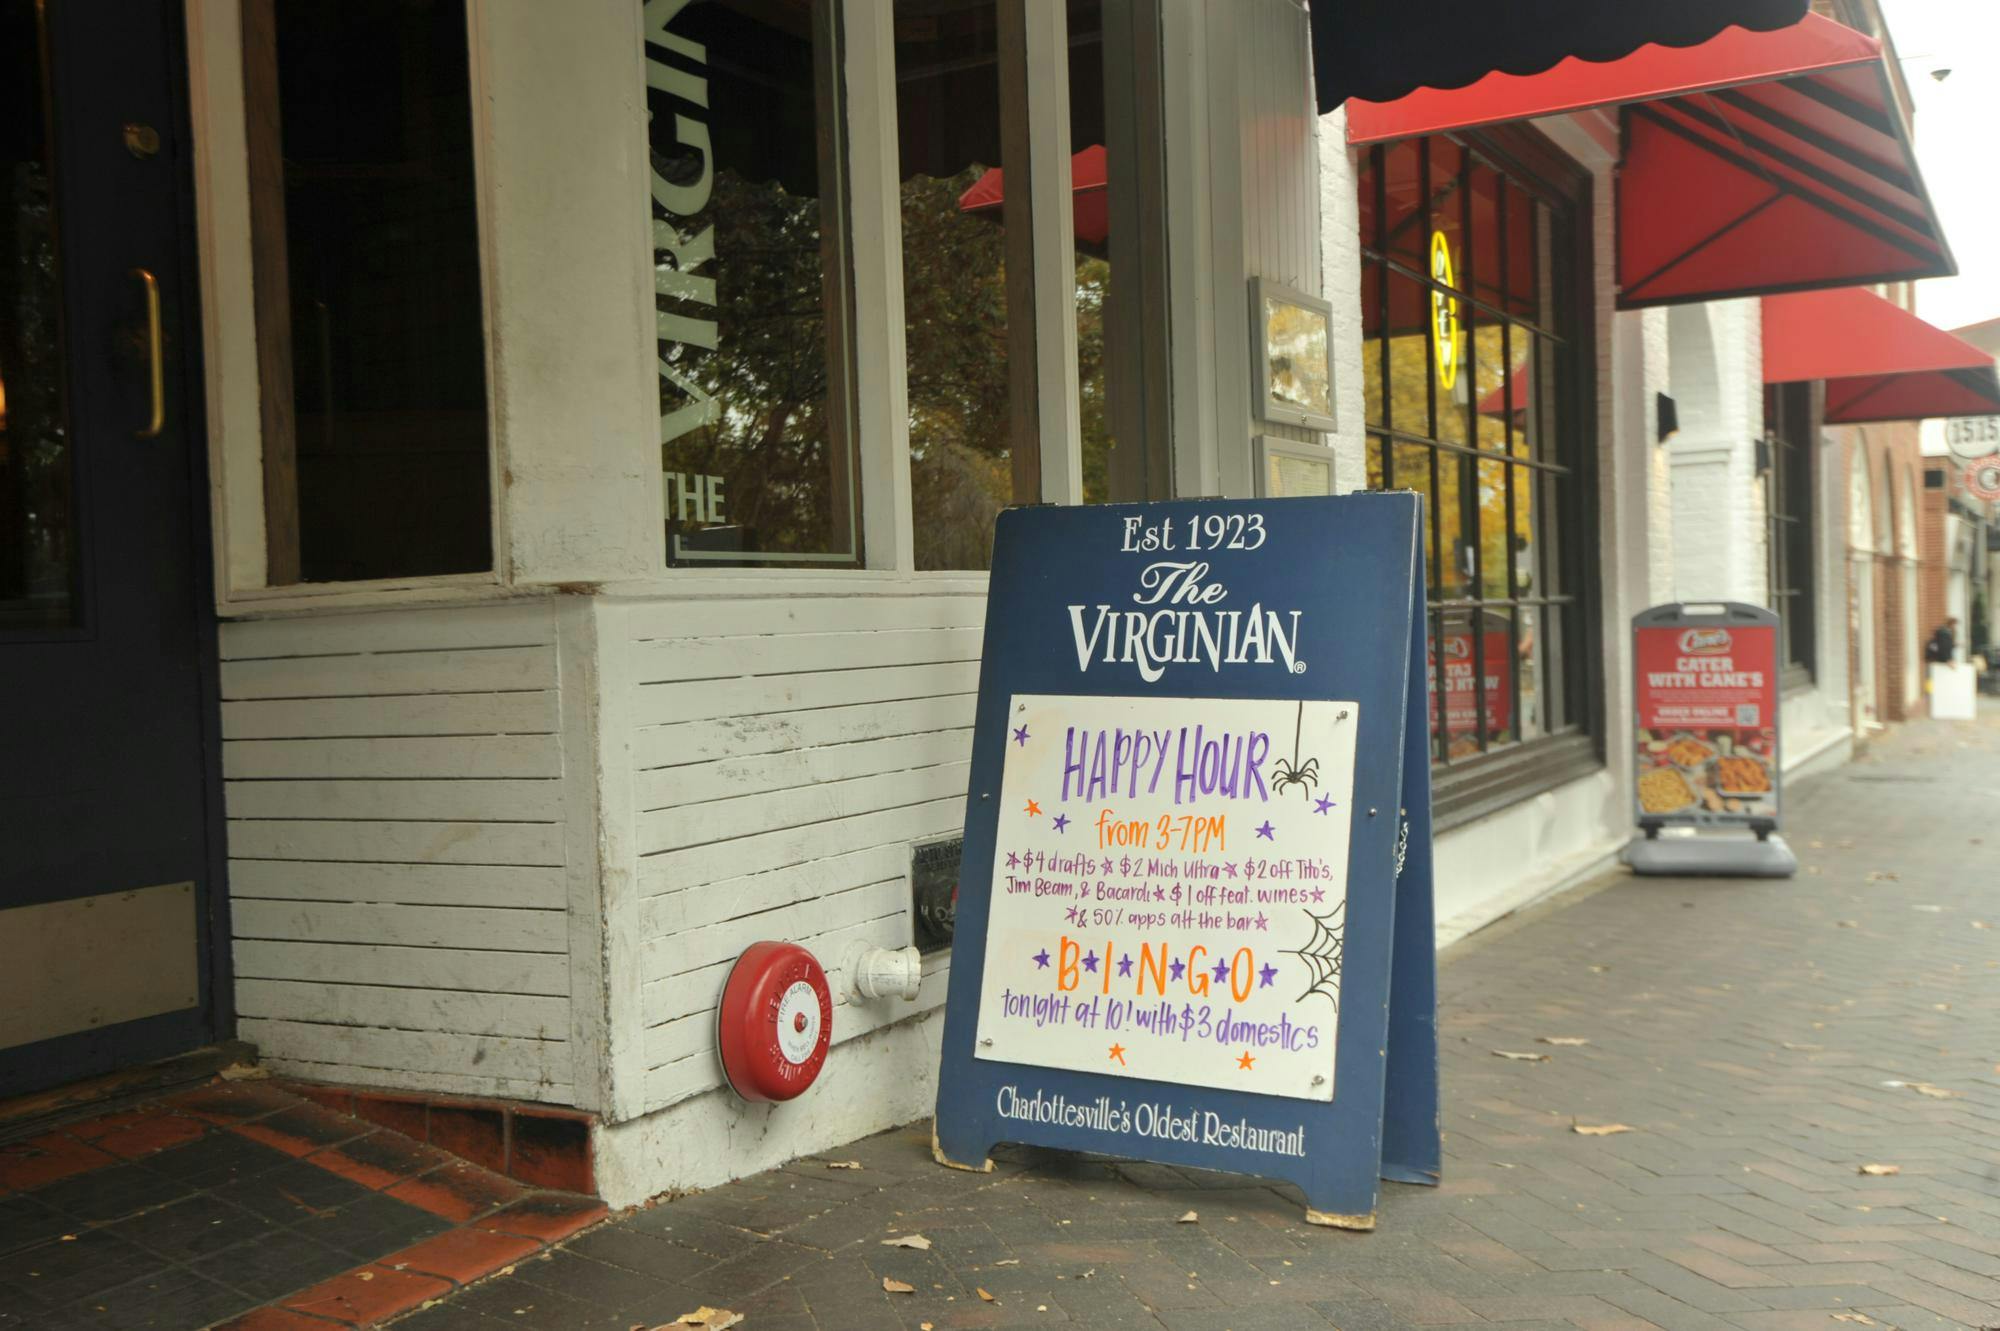 THE VIRGIN
Est 1923
The
VIRGINIAN®
HAPPY HOUR
from 3-7PM
$4 drafts $2 Mich Ultra $2 off Tito's,
Jim Beam, & Bacardi $1 off feat. wines
& 50% apps att the bar
B I N G O
tonight at 10! with $3 domestics
Charlottesville's Oldest Restaurant
FIRE ALARM
Cane's
CATER
WITH CANE'S
ORDER ONLINE
1515